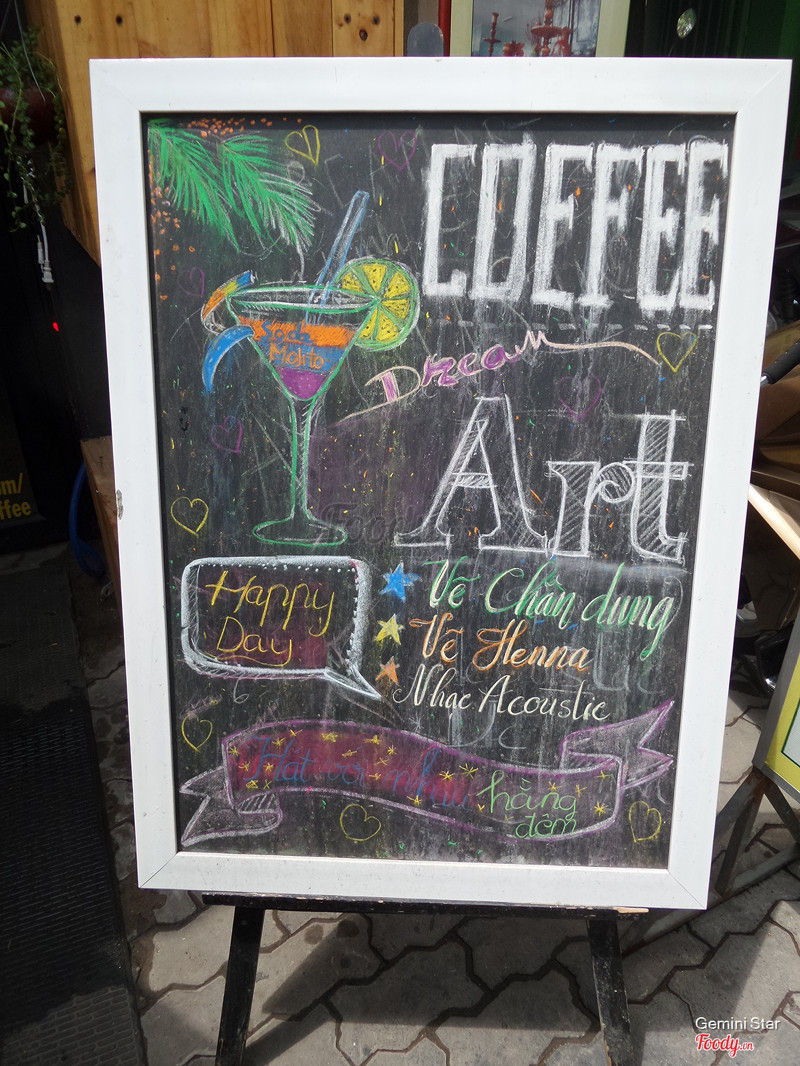 COFFEE
Dream
Art
Soda
Mojito
Happy
Day
Vẽ Chân dung
Vẽ Henna
Nhạc Acoustic
Hát với nhau hằng
đêm
m/
ffee
Foody
Gemini Star
Foody.vn